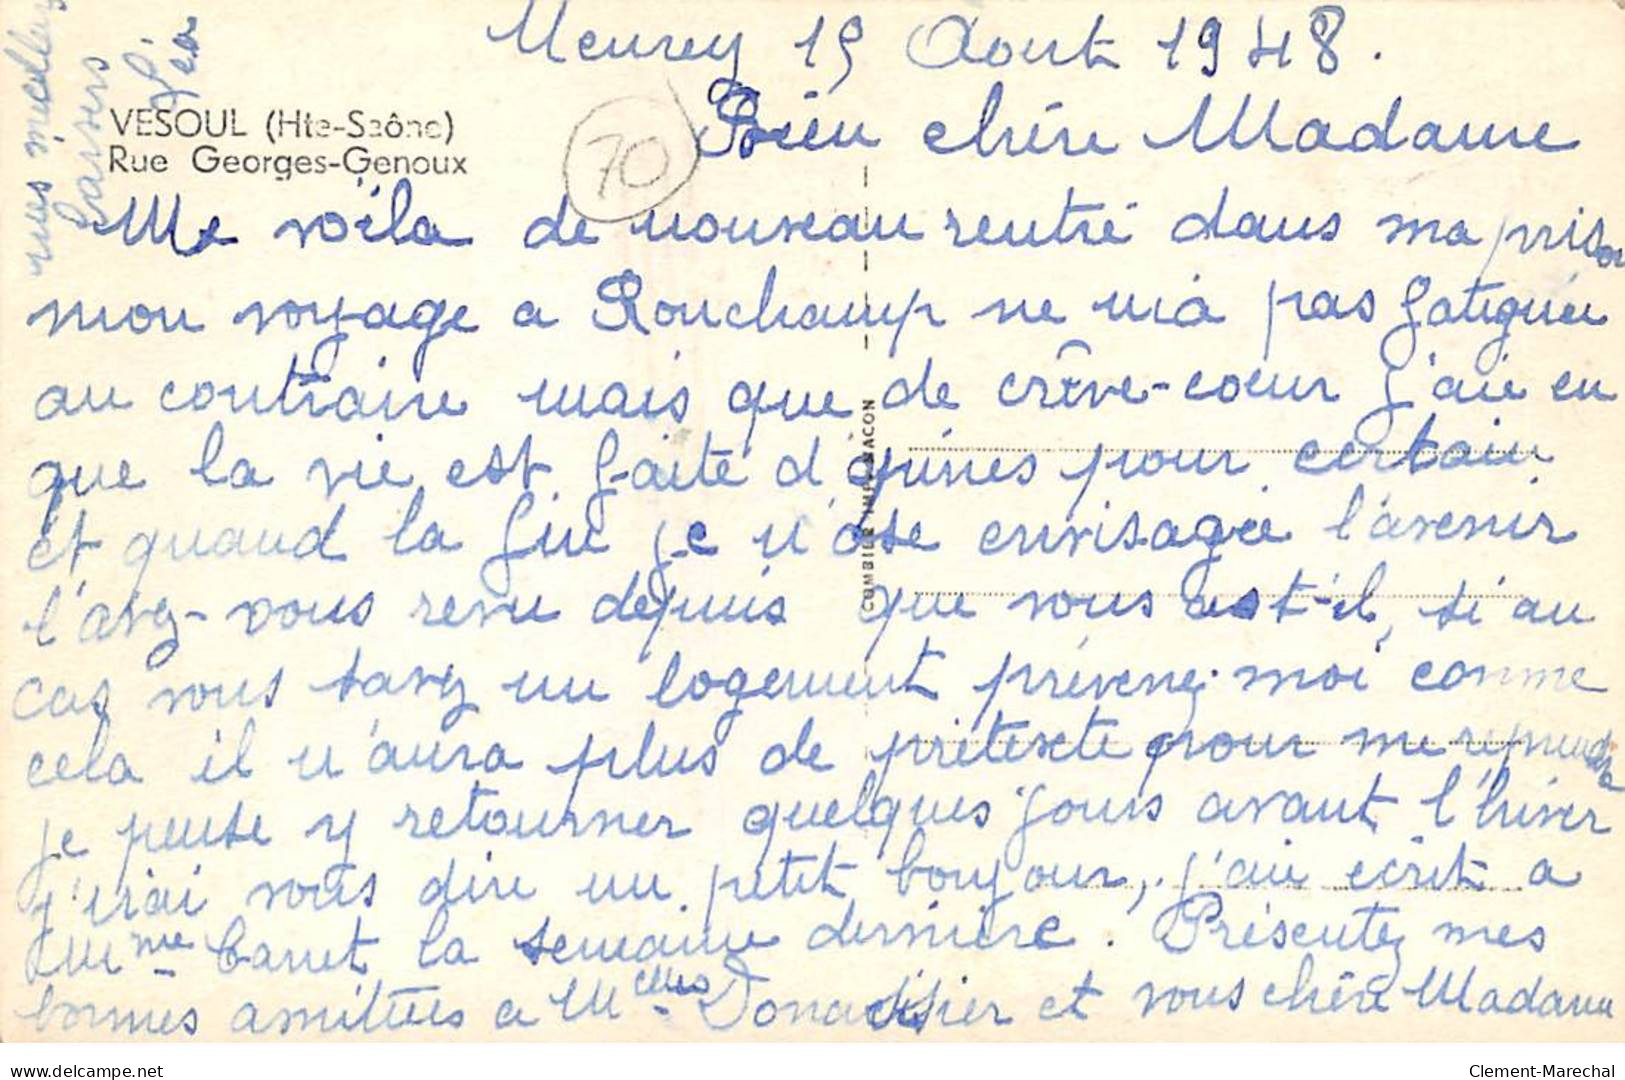 Meurey 19 Aout 1948.
VESOUL (Hte-Saône)
Rue Georges-Genoux
70
Bien chère Madame
Me voila de nouveau rentré dans ma prison
mon voyage a Ronchamp ne m'a pas fatiguée
au contraire mais que de crêve-coeur j'ai eu
que la vie est faite d'épines pour certain
et quand la fin je n'ose envisager l'avenir
l'avez-vous revu depuis que vous a-t-il, si au
cas vous savez un logement prévenez-moi comme
cela il n'aura plus de prétexte pour me reprendre
je pense y retourner quelques jours avant l'hiver
j'irai vous dire un petit bonjour, j'ai écrit a
Mme la semaine dernière. Présentez mes
bonnes amitiées a Melles et vous chère Madame
mes meilleurs
baisers
Léa
COMBIER IMP. MACON
delcampe.net
Clement-Marechal